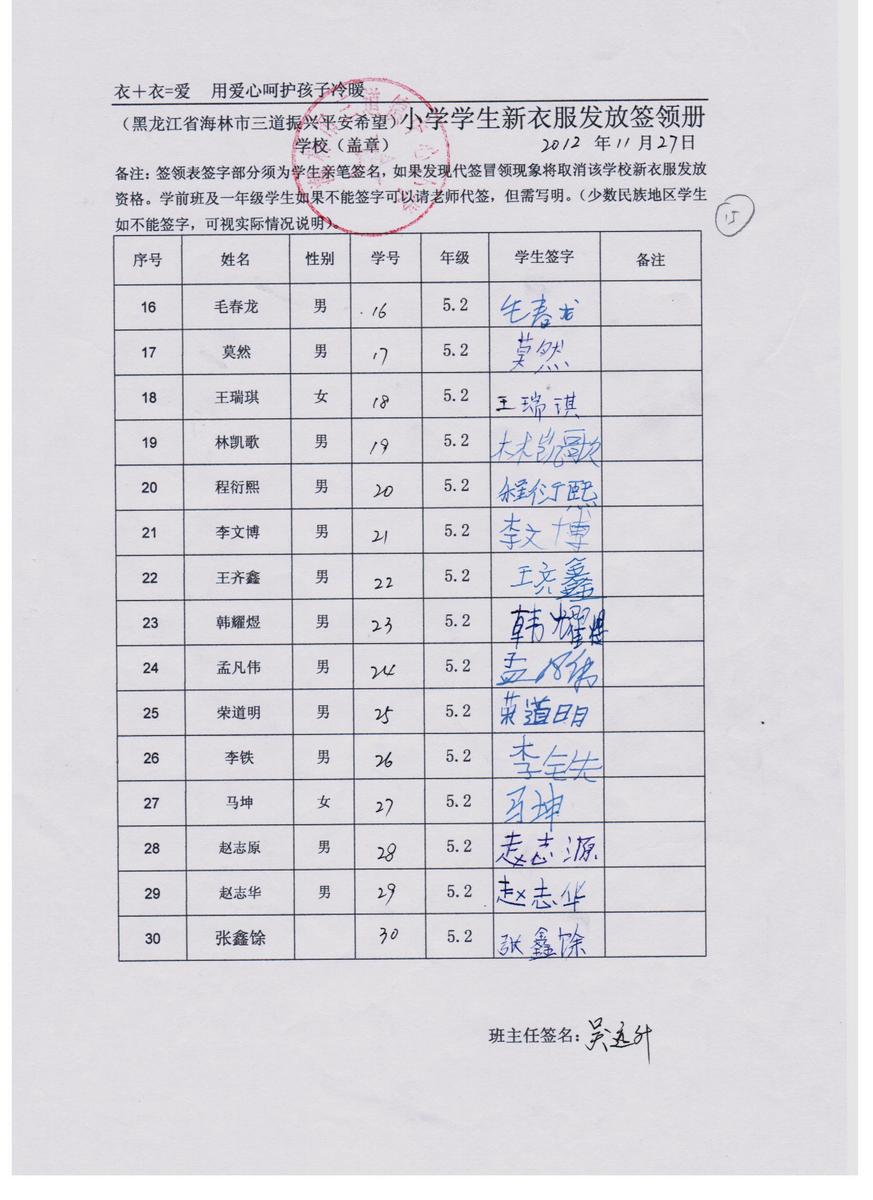 衣+衣=爱 用爱心呵护孩子冷暖
(黑龙江省海林市三道振兴平安希望)小学学生新衣服发放签领册
学校(盖章) 2012 年 11 月 27 日
备注:签领表签字部分须为学生亲笔签名,如果发现代签冒领现象将取消该学校新衣服发放
资格。学前班及一年级学生如果不能签字可以请老师代签,但需写明。(少数民族地区学生
如不能签字,可视实际情况说明)。
15
序号 姓名 性别 学号 年级 学生签字 备注
16 毛春龙 男 16 5.2 毛春龙
17 莫然 男 17 5.2 莫然
18 王瑞琪 女 18 5.2 王瑞琪
19 林凯歌 男 19 5.2 林凯歌
20 程衍熙 男 20 5.2 程衍熙
21 李文博 男 21 5.2 李文博
22 王齐鑫 男 22 5.2 王齐鑫
23 韩耀煜 男 23 5.2 韩耀煜
24 孟凡伟 男 24 5.2 孟凡伟
25 荣道明 男 25 5.2 荣道明
26 李铁 男 26 5.2 李铁
27 马坤 女 27 5.2 马坤
28 赵志原 男 28 5.2 赵志源
29 赵志华 男 29 5.2 赵志华
30 张鑫馀 30 5.2 张鑫馀
班主任签名:吴远升